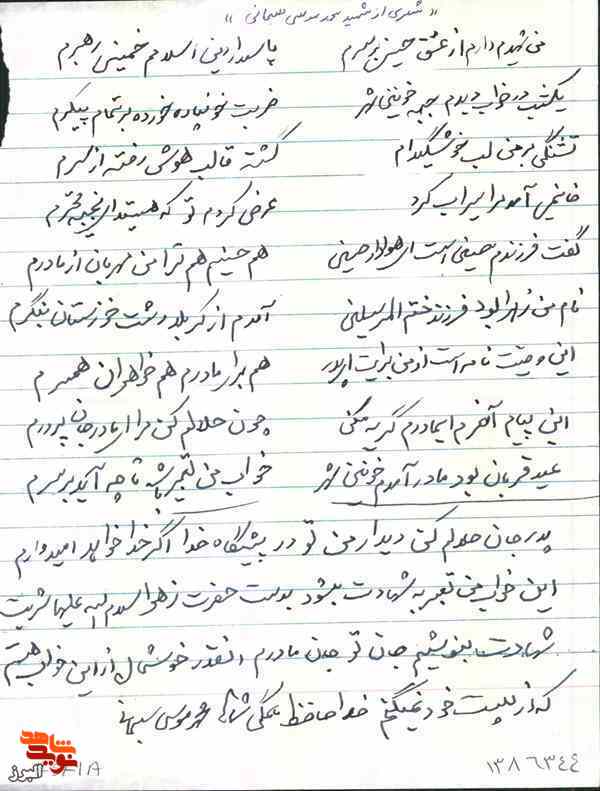 «شعری از شهید محمد موسی سبحانی»
می شهیدم دارم از عشق حسین بر سرم پاسدار دین اسلامم خمینی رهبرم
یکشب در خواب دیدم جبهه خونین شهر ضربت خونپاره خورده بر تمام پیکرم
تشنگی بر من لب خوشگیدام گشته قالب هوشی رفته از سرم
خانمی آمد مرا سیراب کرد عرض کردم تو که هستید ای نجیبه محترم
گفت فرزندم ای هوادار حسینی هم حسینم هم ترا من مهربان از مادرم
نام من زهرا بود فرزند ختم المرسلینی آمدم از کربلا دشت خوزستان بنگرم
این وصیت نامه است از من برایت ای پدر هم برار مادرم هم خواهران همسرم
این پیام آخرم ایمادرم گریه مکنی چون حلالم کن مرا ای مادر جان پرورم
عید قربان بود مادر آمدم خونین شهر خواب من تعبیر باشه تا چه آید بر سرم
پدر جان حلالم کنی دیدار من تو در پیشگاه خدا اگر خدا خواهد امیدوارم
این خواب من تعبیر به شهادت بشود بدست حضرت زهرا سلام الله علیها شربت
شهادت بنوشیم جان تو جان مادرم انقدر خوشحال از این خواب هستم
که از پوست خود نمیگنجم خدا حافظ همگی شما محمد موسی سبحانی
۱۳۸۶۳۴٤
شاهد
نوید
البرز